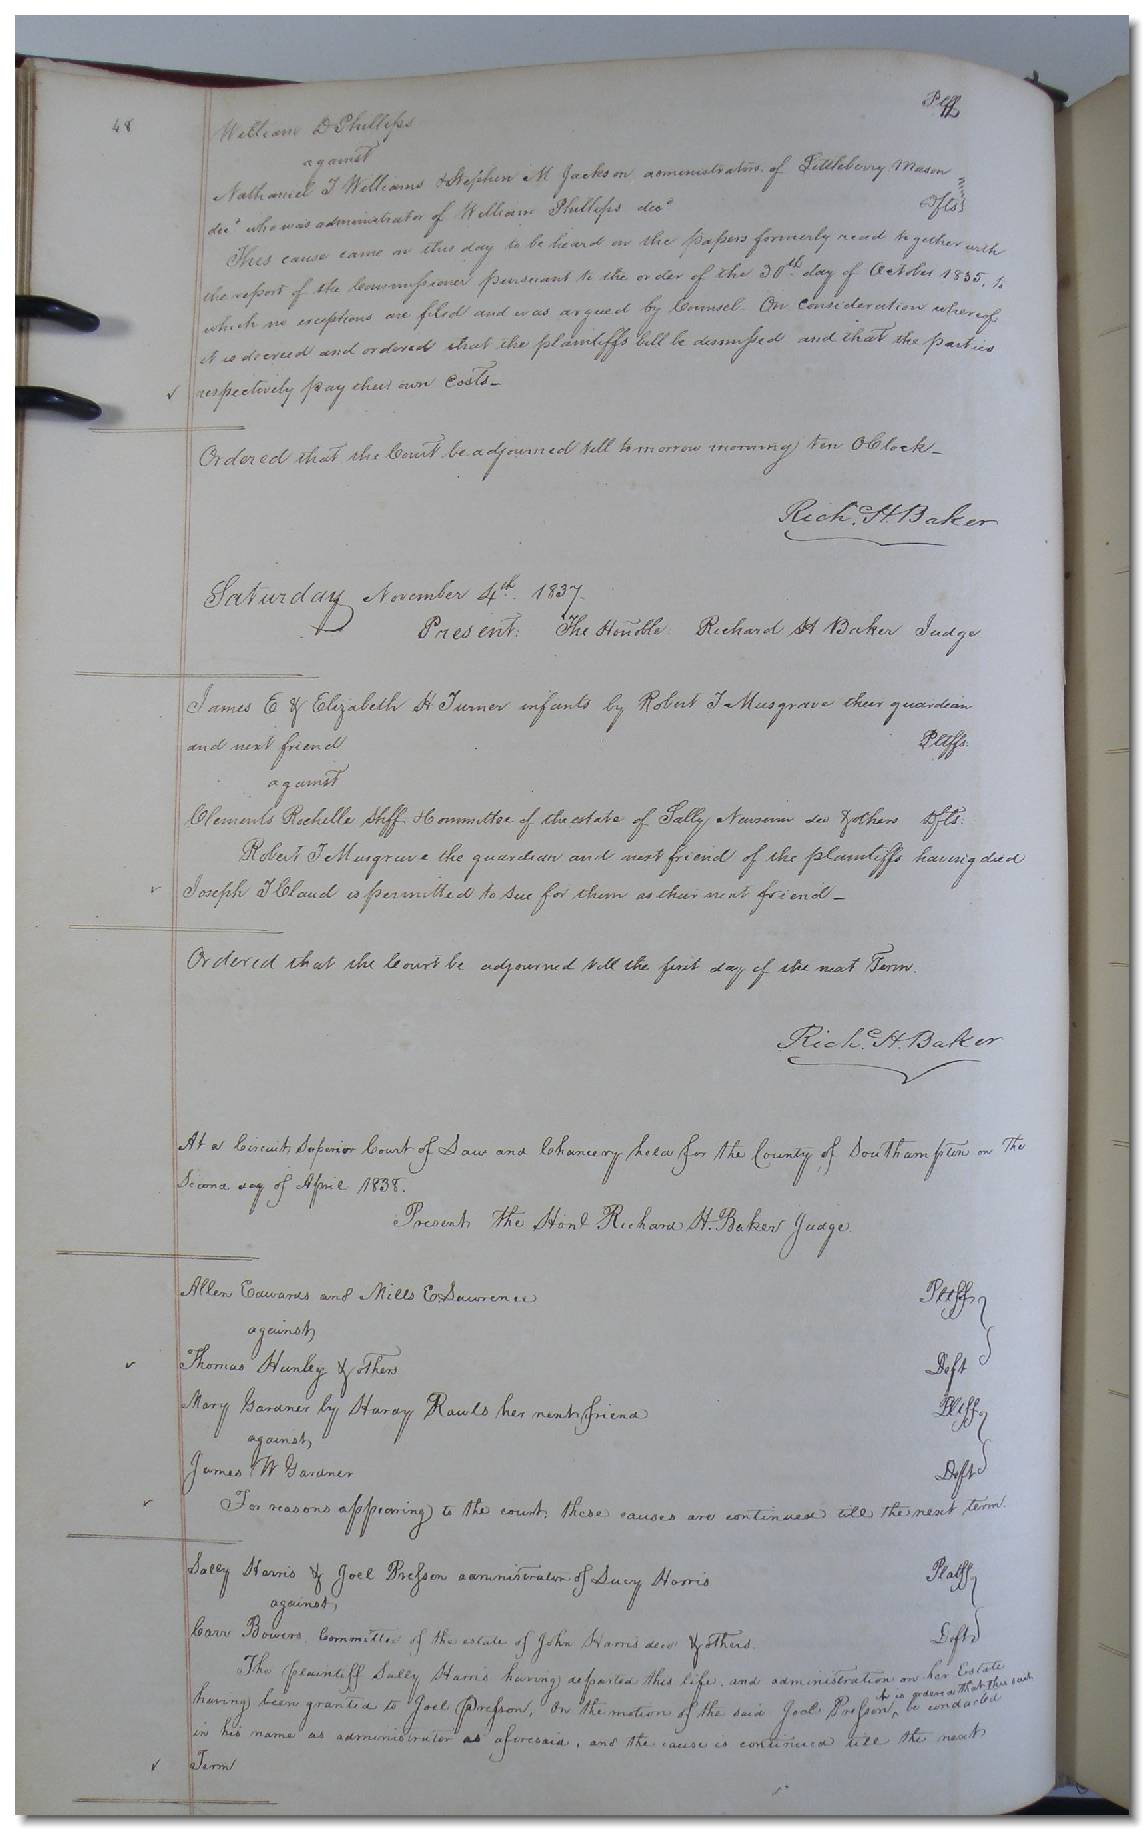 48
Pltf
William D Phillips
against
Nathaniel T Williams & Stephen M Jackson administrators of Littleberry Mason
decd who was administrator of William Phillips decd Dfts
This cause came on this day to be heard on the papers formerly read together with
the report of the Commissioner pursuant to the order of the 30th day of October 1835, to
which no exceptions are filed and was argued by Counsel. On Consideration whereof
it is decreed and ordered that the plaintiffs bill be dismissed and that the parties
respectively pay their own Costs_
Ordered that the Court be adjourned till tomorrow morning ten OClock_
Richd. H. Baker
Saturday November 4th 1837.
Present: The Honble Richard H Baker Judge
James E & Elizabeth H Turner infants by Robert T Musgrave their guardian
and next friend Pltffs.
against
Clements Rochelle Shff & Committee of the estate of Sally Newsum dec & others Dfts.
Robert T Musgrave the guardian and next friend of the plaintiffs having died
Joseph T Claud is permitted to sue for them as their next friend_
Ordered that the Court be adjourned till the first day of the next Term.
Richd. H. Baker
At a Circuit Superior Court of Law and Chancery held for the County of Southampton on The
Second day of April 1838.
Present, the Honl Richard H. Baker Judge.
Allen Edwards and Mills E Lawrence Pltffs
against
Thomas Hunley & others Deft
Mary Gardner by Hardy Rawls her next friend Pltff
against
James W Gardner Deft
For reasons appearing to the court, these causes are continued till the next term.
Sally Harris & Joel Presson administrator of Lucy Harris Platff
against
Carr Bowers Committee of the estate of John Harris decd & others. Defts
The plaintiff Sally Harris having departed this life, and administration on her Estate
having been granted to Joel Presson, On the motion of the said Joel Presson, it is ordered that this suit be conducted
in his name as administrator as aforesaid, and the cause is continued till the next
Term